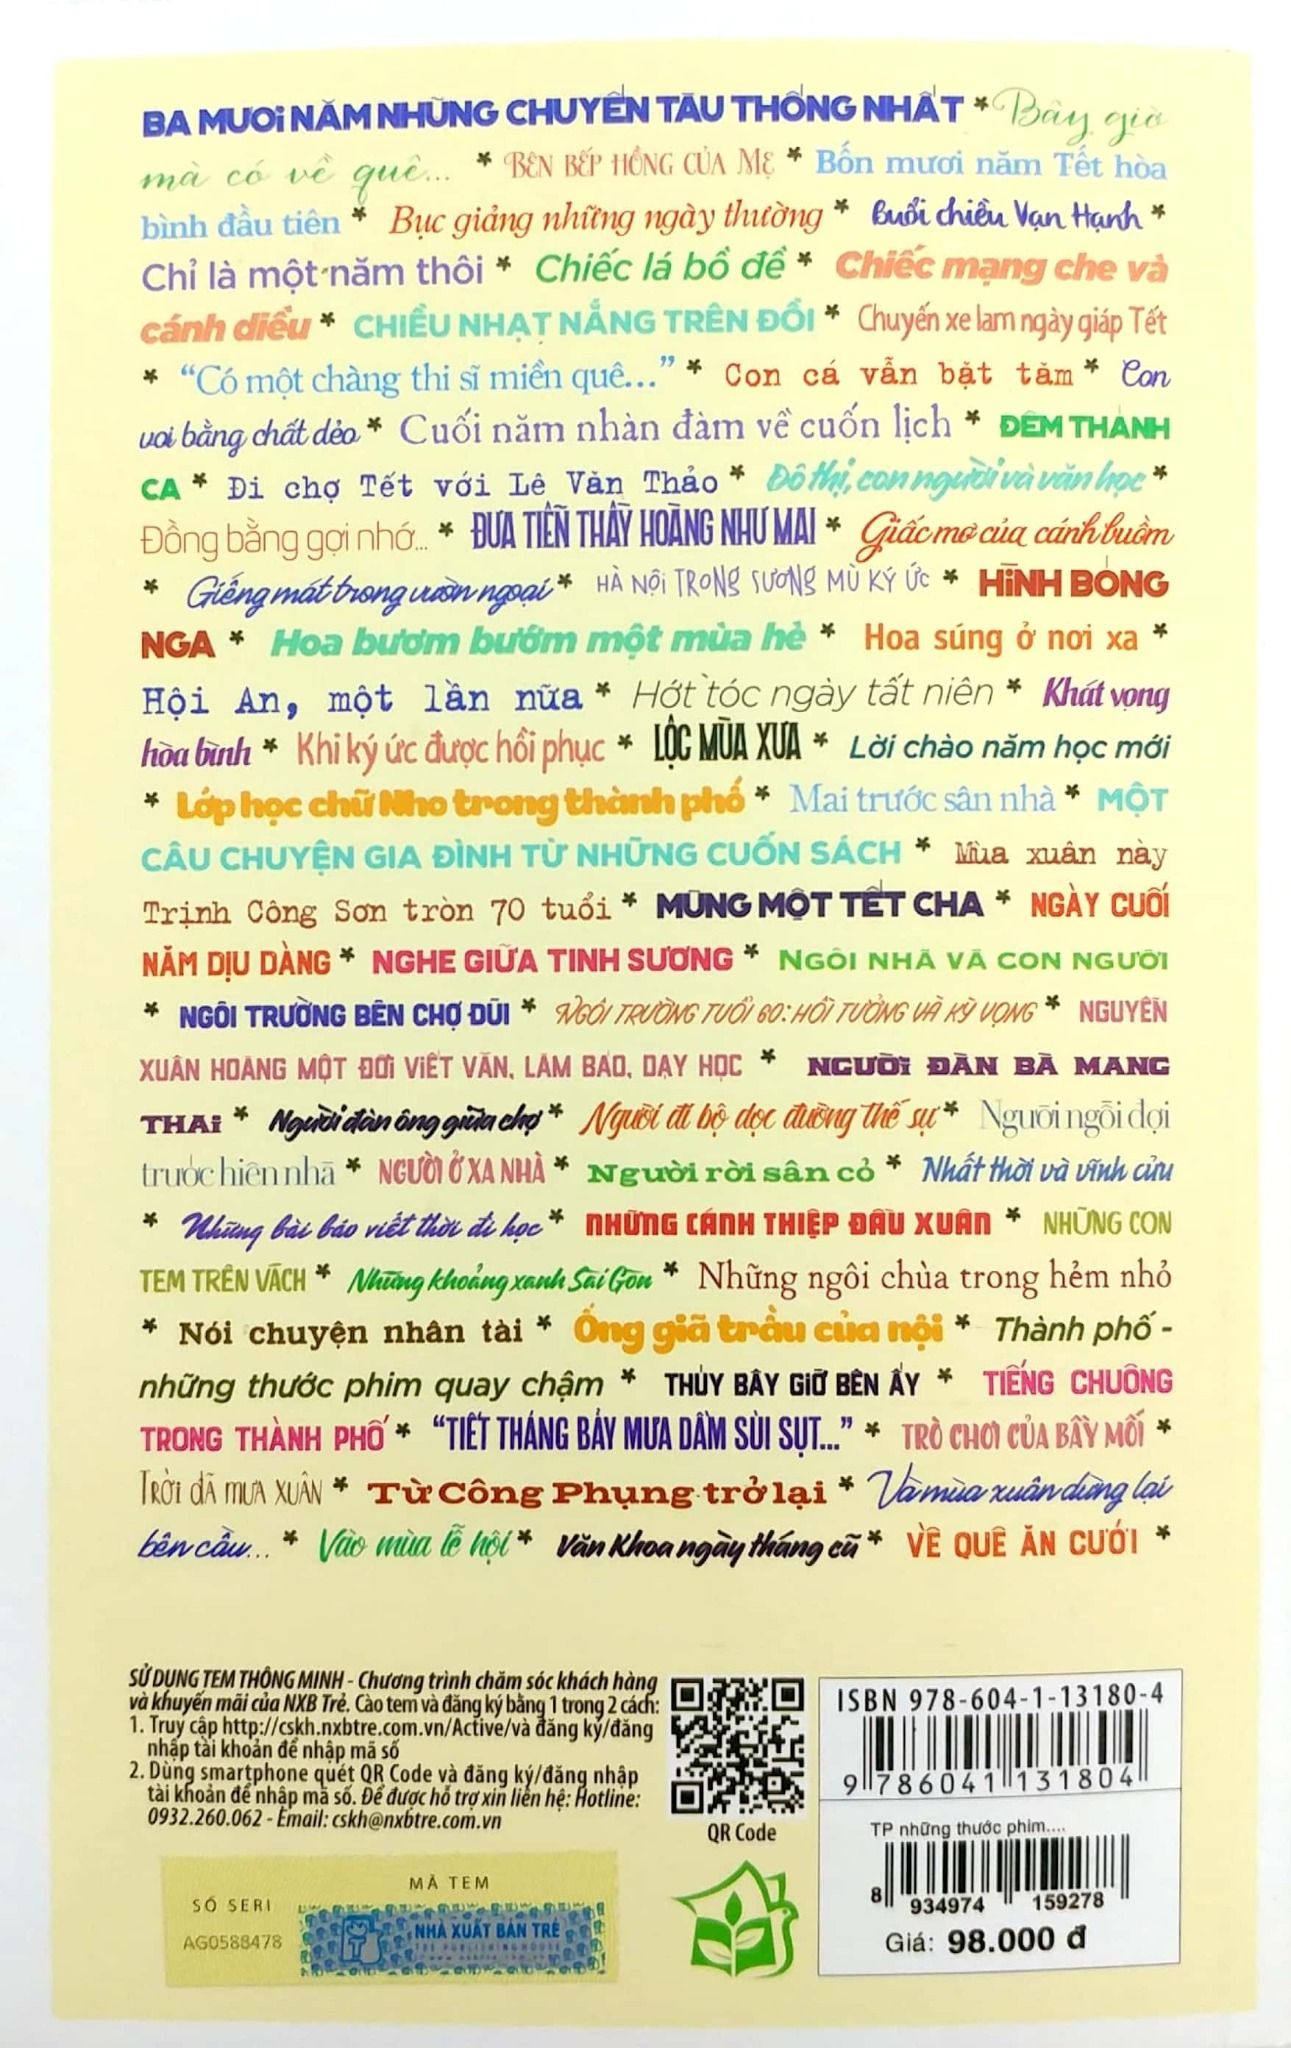 BA MƯƠI NĂM NHỮNG CHUYẾN TÀU THỐNG NHẤT * Bây giờ
mà có về quê... * BÊN BẾP HỒNG CỦA MẸ * Bốn mươi năm Tết hòa
bình đầu tiên * Bục giảng những ngày thường * Buổi chiều Vạn Hạnh *
Chỉ là một năm thôi * Chiếc lá bồ đề * Chiếc mạng che và
cánh diều * CHIỀU NHẠT NẮNG TRÊN ĐỒI * Chuyến xe lam ngày giáp Tết
* “Có một chàng thi sĩ miền quê...” * Con cá vẫn bặt tăm * Con
voi bằng chất dẻo * Cuối năm nhàn đàm về cuốn lịch * ĐÊM THÁNH
CA * Đi chợ Tết với Lê Văn Thảo * Đô thị, con người và văn học *
Đồng bằng gợi nhớ... * ĐƯA TIỄN THẦY HOÀNG NHƯ MAI * Giấc mơ của cánh buồm
* Giếng mát trong vườn ngoại * HÀ NỘI TRONG SƯƠNG MÙ KÝ ỨC * HÌNH BÓNG
NGA * Hoa bươm bướm một mùa hè * Hoa súng ở nơi xa *
Hội An, một lần nữa * Hớt tóc ngày tất niên * Khát vọng
hòa bình * Khi ký ức được hồi phục * LỘC MÙA XƯA * Lời chào năm học mới
* Lớp học chữ Nho trong thành phố * Mai trước sân nhà * MỘT
CÂU CHUYỆN GIA ĐÌNH TỪ NHỮNG CUỐN SÁCH * Mùa xuân này
Trịnh Công Sơn tròn 70 tuổi * MÙNG MỘT TẾT CHA * NGÀY CUỐI
NĂM DỊU DÀNG * NGHE GIỮA TINH SƯƠNG * NGÔI NHÀ VÀ CON NGƯỜI
* NGÔI TRƯỜNG BÊN CHỢ ĐŨI * NGÔI TRƯỜNG TUỔI 60: HỒI TƯỞNG VÀ KỲ VỌNG * NGUYỄN
XUÂN HOÀNG MỘT ĐỜI VIẾT VĂN, LÀM BÁO, DẠY HỌC * NGƯỜI ĐÀN BÀ MANG
THAI * Người đàn ông giữa chợ * Người đi bộ dọc đường thế sự * Người ngồi đợi
trước hiên nhà * NGƯỜI Ở XA NHÀ * Người rời sân cỏ * Nhất thời và vĩnh cửu
* Những bài báo viết thời đi học * NHỮNG CÁNH THIỆP ĐẦU XUÂN * NHỮNG CON
TEM TRÊN VÁCH * Những khoảng xanh Sài Gòn * Những ngôi chùa trong hẻm nhỏ
* Nói chuyện nhân tài * Ống giã trầu của nội * Thành phố -
những thước phim quay chậm * THÚY BÂY GIỜ BÊN ẤY * TIẾNG CHUÔNG
TRONG THÀNH PHỐ * “TIẾT THÁNG BẢY MƯA DẦM SÙI SỤT...” * TRÒ CHƠI CỦA BẦY MỐI *
TRỜI ĐÃ MƯA XUÂN * Từ Công Phụng trở lại * Và mùa xuân dừng lại
bên cầu... * Vào mùa lễ hội * Văn Khoa ngày tháng cũ * VỀ QUÊ ĂN CƯỚI *
SỬ DỤNG TEM THÔNG MINH - Chương trình chăm sóc khách hàng
và khuyến mãi của NXB Trẻ. Cào tem và đăng ký bằng 1 trong 2 cách:
1. Truy cập http://cskh.nxbtre.com.vn/Active/và đăng ký/đăng
nhập tài khoản để nhập mã số
2. Dùng smartphone quét QR Code và đăng ký/đăng nhập
tài khoản để nhập mã số. Để được hỗ trợ xin liên hệ: Hotline:
0932.260.062 - Email: cskh@nxbtre.com.vn
QR Code
ISBN 978-604-1-13180-4
9 786041 131804
TP những thước phim....
8 934974 159278
Giá: 98.000 đ
MÃ TEM
SỐ SERI
AG0588478
NHÀ XUẤT BẢN TRẺ